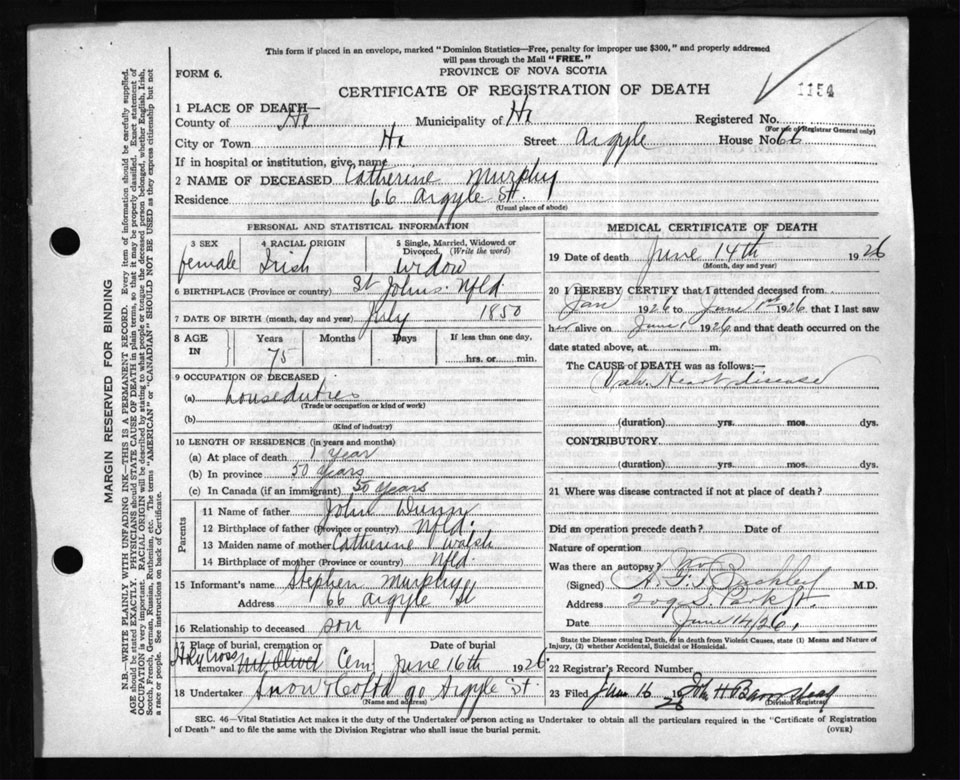 This form if placed in an envelope, marked "Dominion Statistics—Free, penalty for improper use $300," and properly addressed
will pass through the Mail "FREE."
FORM 6.
PROVINCE OF NOVA SCOTIA
CERTIFICATE OF REGISTRATION OF DEATH
1154
1 PLACE OF DEATH—
County of Hx Municipality of Hx Registered No.
(For use of Registrar General only)
City or Town Hx Street Argyle House No. 66
If in hospital or institution, give name
2 NAME OF DECEASED Catherine Murphy
Residence 66 Argyle St.
(Usual place of abode)
PERSONAL AND STATISTICAL INFORMATION
3 SEX 4 RACIAL ORIGIN 5 Single, Married, Widowed or
Divorced. (Write the word)
female Irish Widow
6 BIRTHPLACE (Province or country) St Johns. Nfld.
7 DATE OF BIRTH (month, day and year) July 1850
8 AGE IN Years Months Days If less than one day,
75 hrs. or min.
9 OCCUPATION OF DECEASED
(a) houseduties
(Trade or occupation or kind of work)
(b)
(Kind of industry)
10 LENGTH OF RESIDENCE (in years and months)
(a) At place of death 1 year
(b) In province 50 years
(c) In Canada (if an immigrant) 50 years
Parents
11 Name of father John Dunn
12 Birthplace of father (Province or country) Nfld.
13 Maiden name of mother Catherine Walsh
14 Birthplace of mother (Province or country) Nfld.
15 Informant's name Stephen Murphy
Address 66 Argyle St
16 Relationship to deceased son
17 Place of burial, cremation or Date of burial
Holy Cross
removal Mt. Olivet Cem June 16th 1926.
18 Undertaker Snow & Co Ltd 90 Argyle St.
(Name and address)
MEDICAL CERTIFICATE OF DEATH
19 Date of death June 14th 1926
(Month, day and year)
20 I HEREBY CERTIFY that I attended deceased from
Jan 1926 to June 1st 1926 that I last saw
her alive on June 1 1926 and that death occurred on the
date stated above, at m.
The CAUSE OF DEATH was as follows:—
Valv. Heart disease
(duration) yrs. mos. dys.
CONTRIBUTORY
(duration) yrs. mos. dys.
21 Where was disease contracted if not at place of death?
Did an operation precede death? Date of
Nature of operation
Was there an autopsy? No
(Signed) M.D.
Address 209 S. Park St.
Date June 14/26,
State the Disease causing Death, or in death from Violent Causes, state (1) Means and Nature of
Injury, (2) whether Accidental, Suicidal or Homicidal.
22 Registrar's Record Number
23 Filed June 16 1926 John H Barnstead
(Division Registrar)
SEC. 46—Vital Statistics Act makes it the duty of the Undertaker or person acting as Undertaker to obtain all the particulars required in the "Certificate of Registration
of Death" and to file the same with the Division Registrar who shall issue the burial permit. (OVER)
MARGIN RESERVED FOR BINDING
N.B.—WRITE PLAINLY WITH UNFADING INK—THIS IS A PERMANENT RECORD. Every item of information should be carefully supplied.
AGE should be stated EXACTLY. PHYSICIANS should STATE CAUSE OF DEATH in plain terms, so that it may be properly classified. Exact statement of
OCCUPATION is very important. RACIAL ORIGIN will be described by stating to what people or tongue the deceased person belonged, whether English, Irish,
Scotch, French, German, Russian, Ruthenian, etc. The terms "AMERICAN" or "CANADIAN" SHOULD NOT BE USED as they express citizenship but not
a race or people. See instructions on back of Certificate.